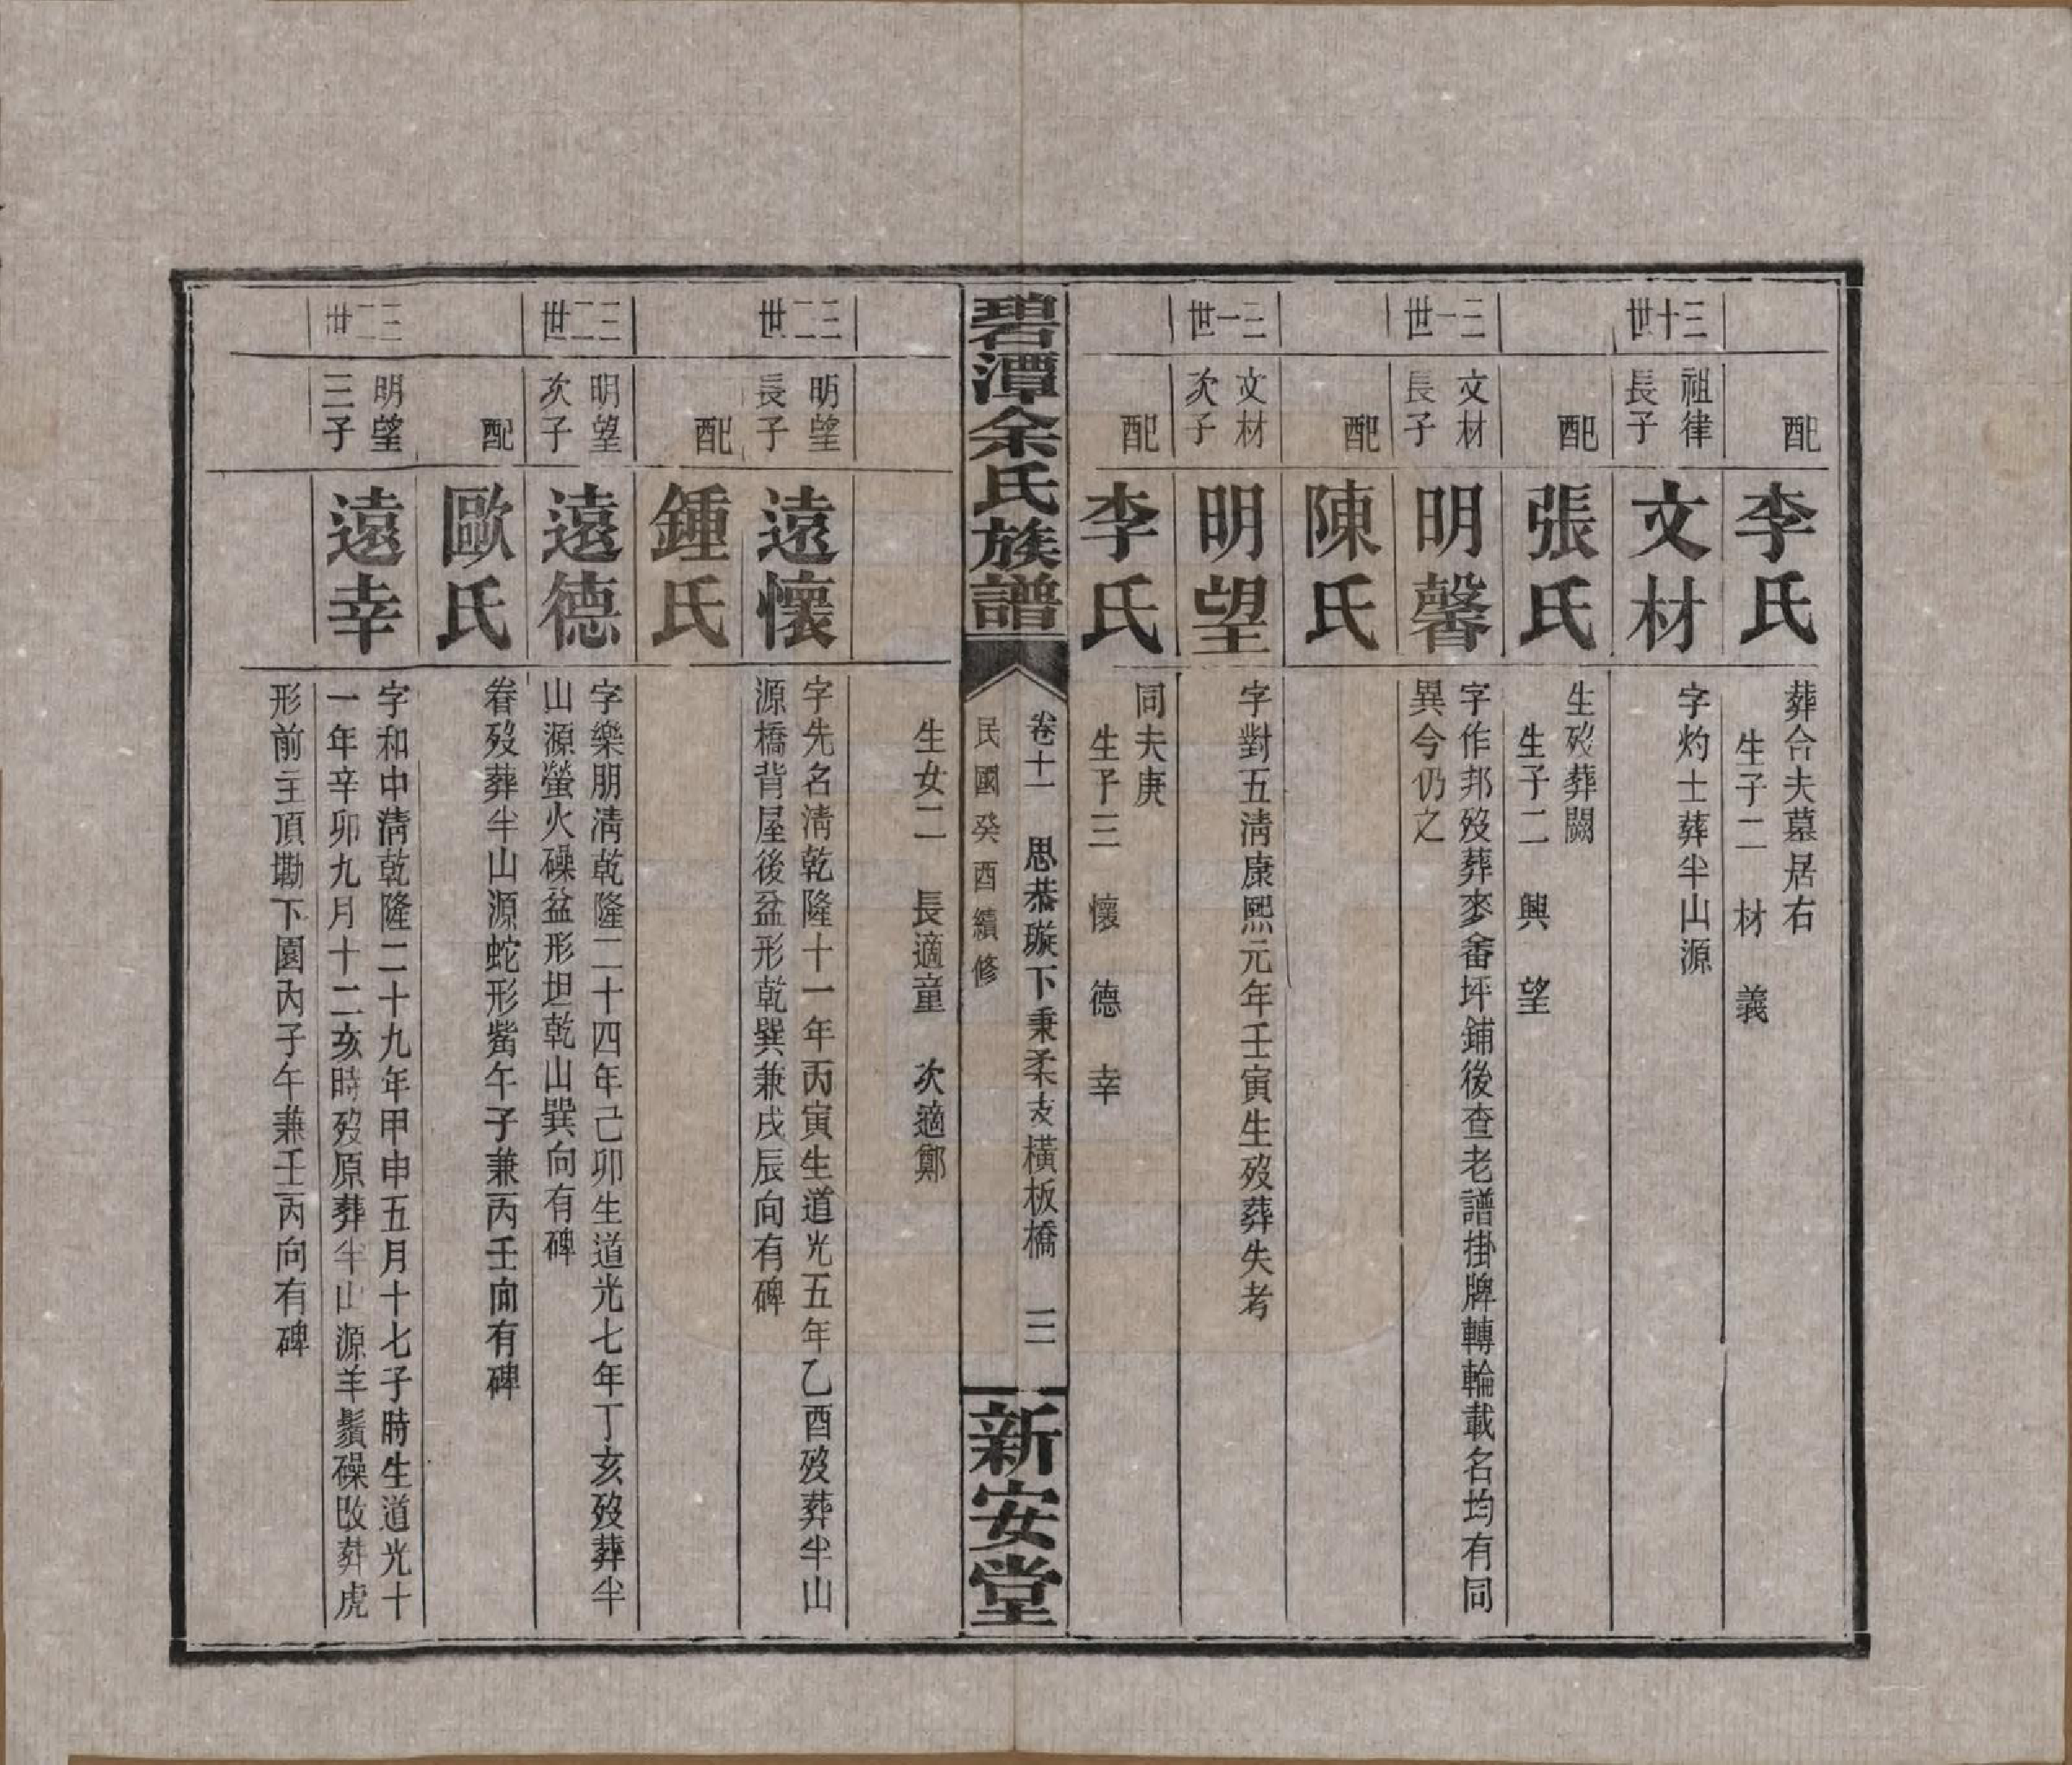 配
李氏
葬合夫墓居右
生子二 材 義
三十世
祖律
長子
文材
字灼士葬半山源
配
張氏
生歿葬闕
生子二 興 望
三一世
文材
長子
明馨
字作邦歿葬麥畬坪鋪後查老譜掛牌轉輪載名均有同
異今仍之
配
陳氏
三一世
文材
次子
明望
字對五淸康熙元年壬寅生歿葬失考
配
李氏
同夫庚
生子三 懷 德 幸
碧潭余氏族譜
卷十一 思恭璇下秉柔支橫板橋 三
民國癸酉續修
新安堂
生女二 長適童 次適鄭
三二世
明望
長子
遠懷
字先名淸乾隆十一年丙寅生道光五年乙酉歿葬半山
源橋背屋後盆形乾巽兼戌辰向有碑
配
鍾氏
三二世
明望
次子
遠德
字樂朋淸乾隆二十四年己卯生道光七年丁亥歿葬半
山源螢火磜盆形坦乾山巽向有碑
配
歐氏
眷歿葬半山源蛇形嘴午子兼丙壬向有碑
三二世
明望
三子
遠幸
字和中淸乾隆二十九年甲申五月十七子時生道光十
一年辛卯九月十二亥時歿原葬半山源羊鬚磜改葬虎
形前主頂墈下園內子午兼壬丙向有碑